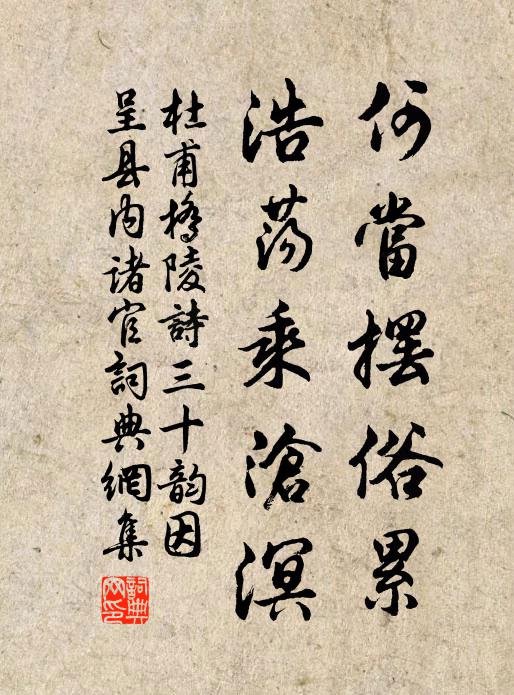 何當摆俗累
浩荡乘滄溟
杜甫橋陵詩三十韵因
呈县内诸官詞典網集
詞典
网印